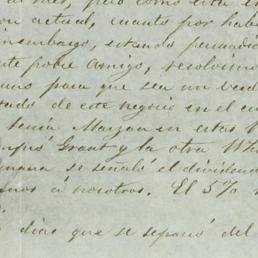 pero como este
actual, cuanto por habe
sinembargo, estando persuadid
te pobre amigo, resolvimos
para que sea un verd
tado de este negocio en el cu
tenia Marzan en estas
Grant y la otra Wh
se señaló el dividend
mos á nosotros. El 5%
dias que se separó del